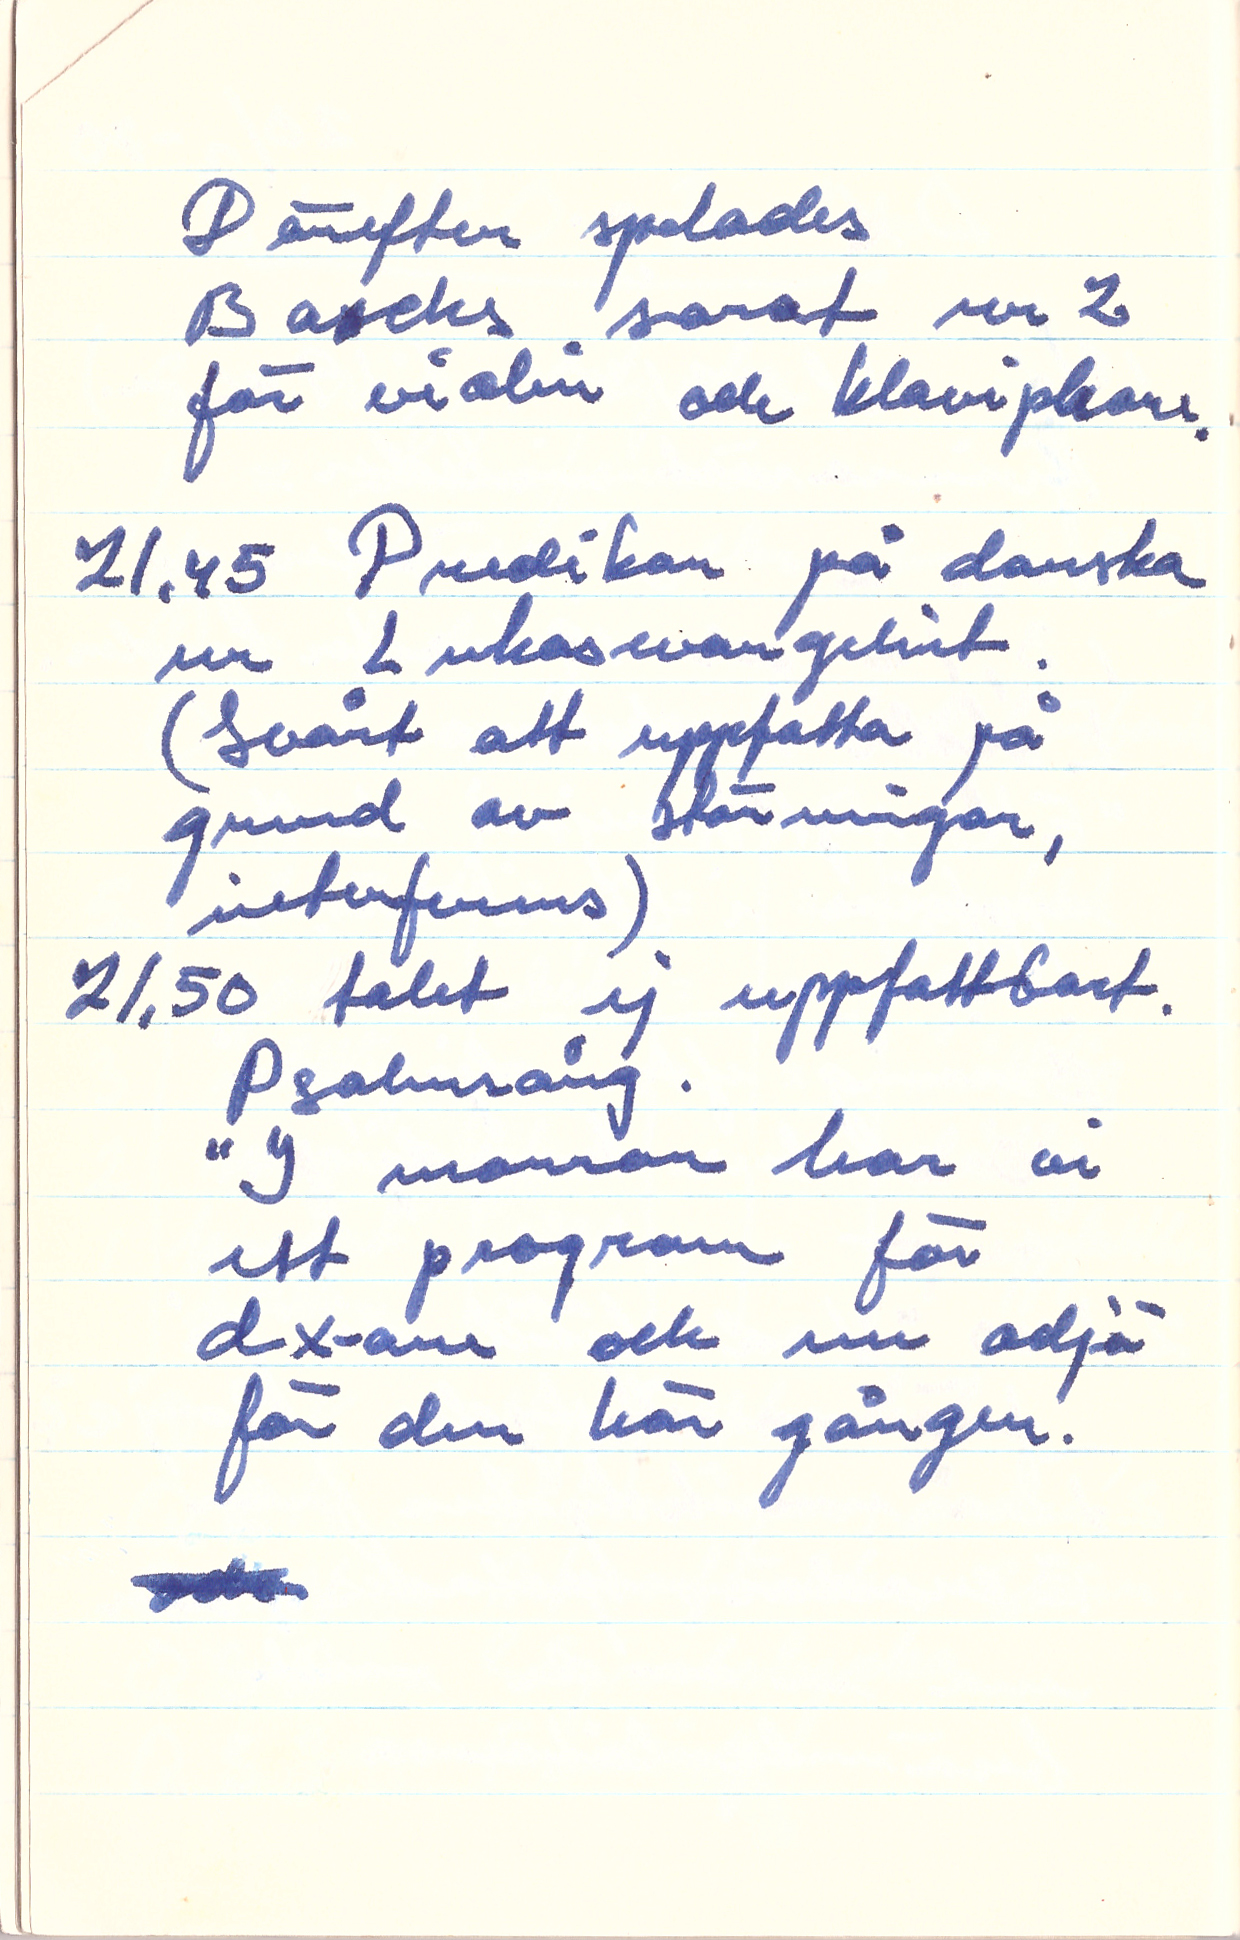 Därefter spelades
Bachs sonat nr 2
för violin och
21.45 Predikan på danska
ur Lukasevangeliet.
(Svårt att uppfatta på
grund av störningar,
interferens)
21.50 talet ej uppfattbart.
Psalmsång.
"I morron har vi
ett program för
dx-are och nu adjö
för den här gången.